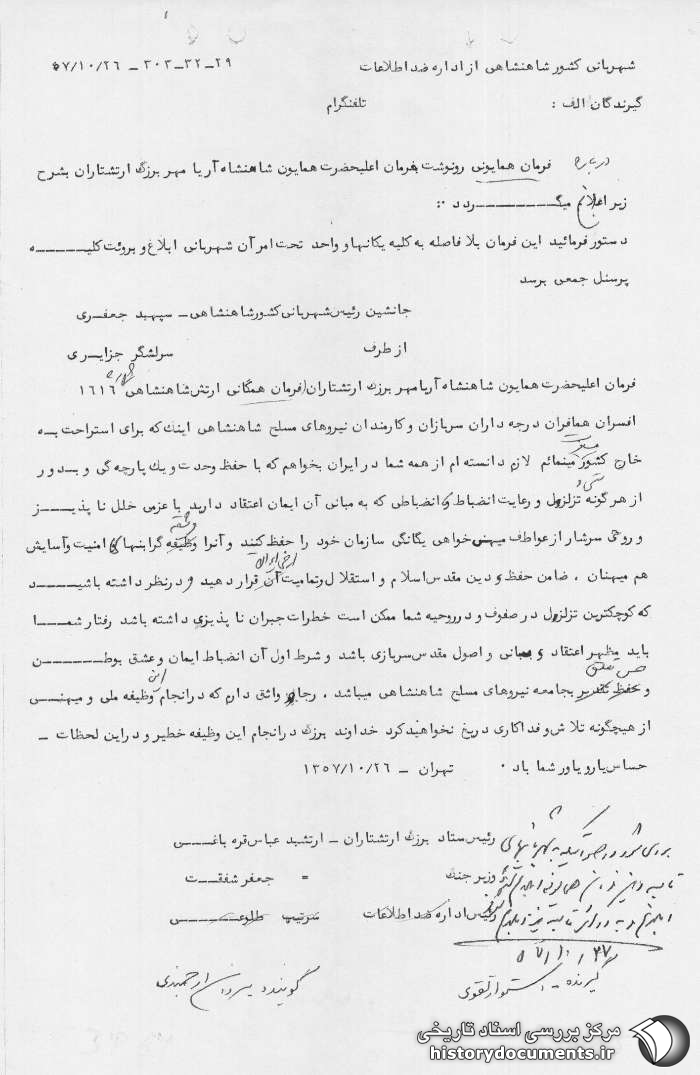 شهربانی کشور شاهنشاهی از اداره ضد اطلاعات ۲۹-۳۲-۳۰۳ - ۵۷/۱۰/۲۶
گیرندگان الف : تلفنگرام
درباره فرمان همایونی رونوشت فرمان اعلیحضرت همایون شاهنشاه آریا مهر بزرگ ارتشتاران بشرح
زیر اعلام میگـــــــردد :
دستور فرمائید این فرمان بلا فاصله به کلیه یکانها و واحد تحت امر آن شهربانی ابلاغ و بروئت کلیـــــه
پرسنل جمعی برسد
جانشین رئیس شهربانی کشور شاهنشاهی - سپهبد جعفـری
از طرف سرلشگر جزایـری
فرمان اعلیحضرت همایون شاهنشاه آریامهر بزرگ ارتشتاران فرمان همگانی ارتش شاهنشاهی شماره ۱٦۱٦
افسران همافران درجه داران سربازان و کارمندان نیروهای مسلح شاهنشاهی اینک که برای استراحت بـه
خارج کشور مینمائم لازم دانسته ام از همه شما در ایران بخواهم که با حفظ وحدت و یک پارچه گی و بـدور
از هر گونه تزلزل و رعایت انضباط و انضباطی که به مبانی آن ایمان اعتقاد دارید با عزمی خلل نا پذیـــز
و روحی سرشار از عواطف میهنی خواهی یگانگی سازمان خود را حفظ کنند و آنرا وظیفه گرابنها امنیت و آسایش
هم میهنان ، ضامن حفظ دین مقدس اسلام و استقلال و تمامیت ارضی ایران قرار دهید و در نظر داشته باشیـــد
که کوچکترین تزلزل در صفوف و در روحیه شما ممکن است خطرات جبران نا پذیری داشته باشد رفتار شمــا
باید مظهر اعتقاد و مبانی و اصول مقدس سربازی باشد و شرط اول آن انضباط ایمان و عشق بوطـــــن
و بجامعه نیروهای مسلح شاهنشاهی میباشد . رجاء واثق دارم که در انجام این وظیفه ملی و میهنــی
از هیچگونه تلاش و فداکاری دریغ نخواهید کرد خداوند بزرگ در انجام این وظیفه خطیر و در این لحظات -
حساس یار و یاور شما باد . تهران - ۱۳۵۷/۱۰/۲۶
رئیس ستاد بزرگ ارتشتاران - ارتشبد عباس قره باغــی
وزیر جنگ = جعفر شفقــت
رئیس اداره ضد اطلاعات سرتیپ طلوعــی
۵۷/۱۰/۲۷
گیرنده - استوار تقوی
گوینده
مرکز بررسی اسناد تاریخی
historydocuments.ir